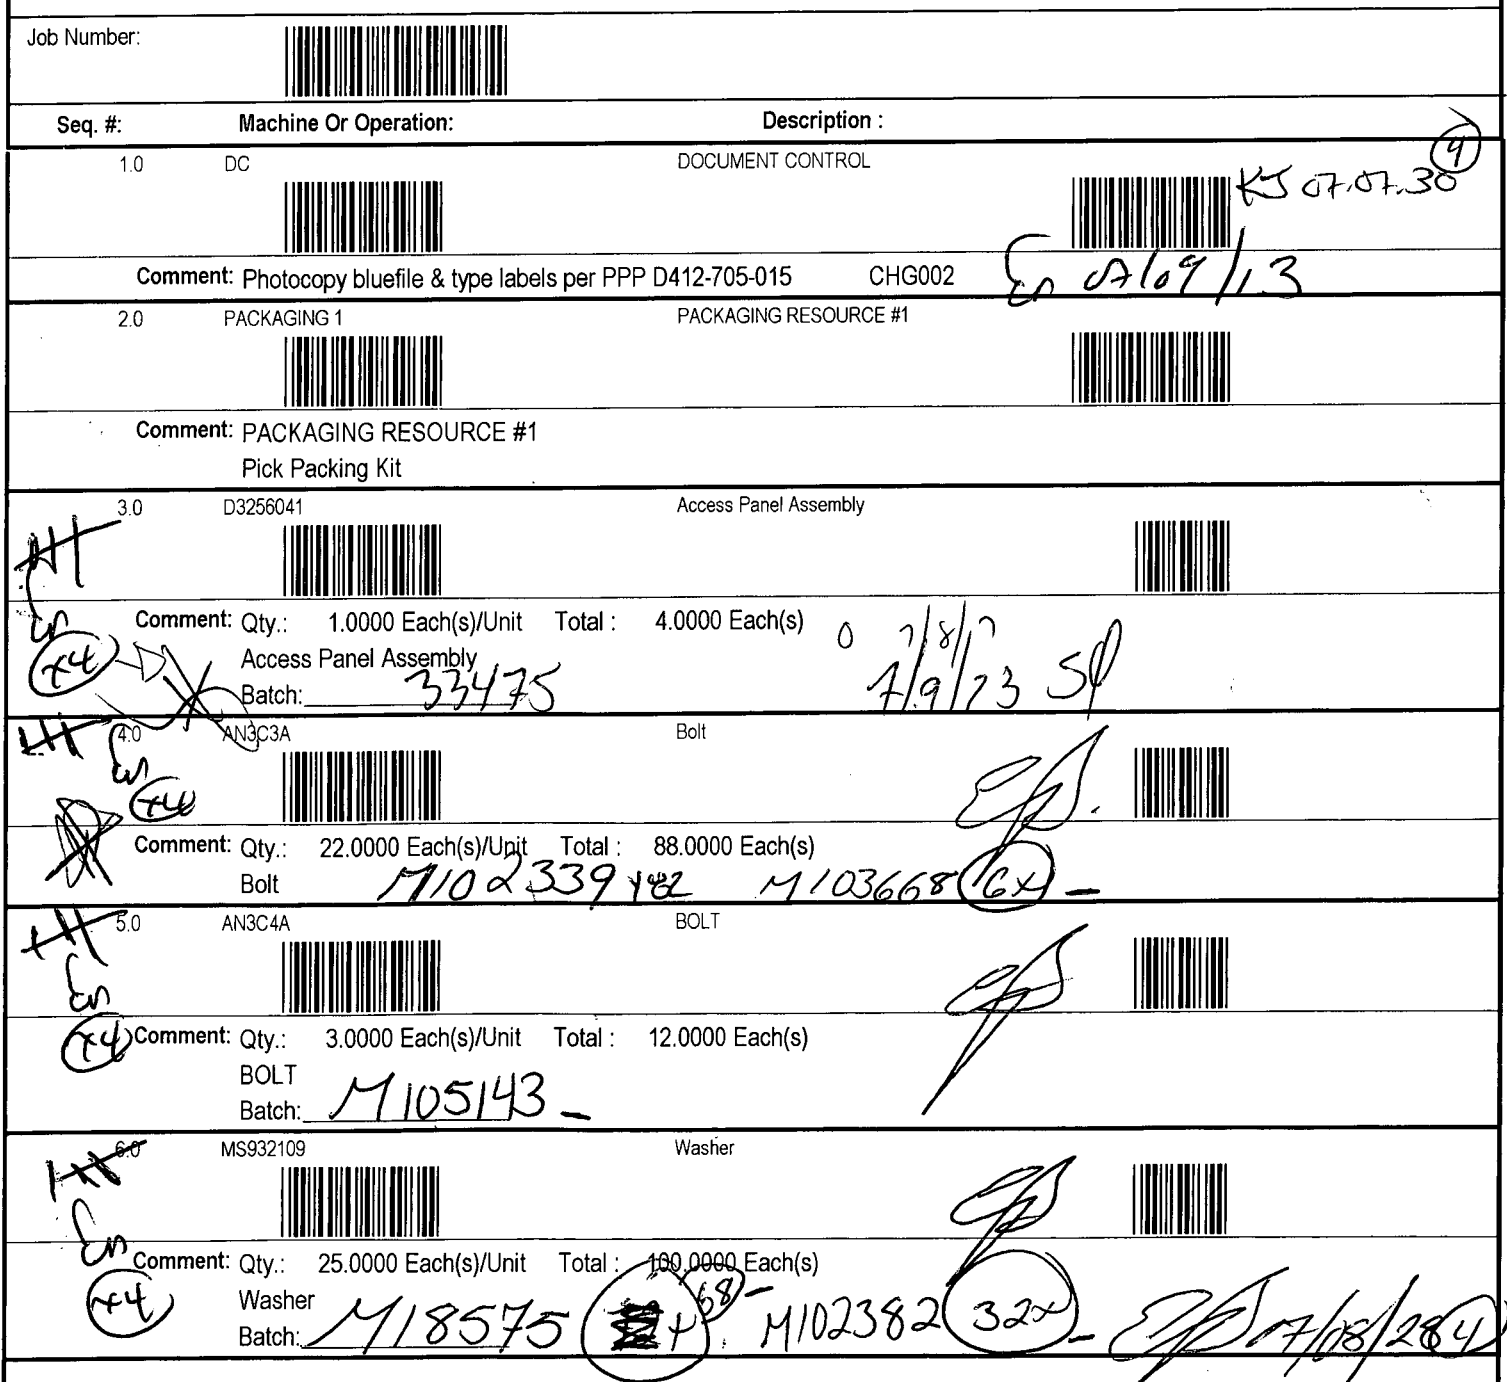 Job Number:
Seq. #: Machine Or Operation: Description :
1.0 DC DOCUMENT CONTROL
KJ 07.07.30
Comment: Photocopy bluefile & type labels per PPP D412-705-015 CHG002 07/09/13
2.0 PACKAGING 1 PACKAGING RESOURCE #1
Comment: PACKAGING RESOURCE #1
Pick Packing Kit
3.0 D3256041 Access Panel Assembly
Comment: Qty.: 1.0000 Each(s)/Unit Total : 4.0000 Each(s)
x4 Access Panel Assembly
Batch: 33475
4.0 AN3C3A Bolt
x4
Comment: Qty.: 22.0000 Each(s)/Unit Total : 88.0000 Each(s)
Bolt M102339 x82 M103668 6x
5.0 AN3C4A BOLT
x4 Comment: Qty.: 3.0000 Each(s)/Unit Total : 12.0000 Each(s)
BOLT
Batch: M105143
6.0 MS932109 Washer
Comment: Qty.: 25.0000 Each(s)/Unit Total : 100.0000 Each(s)
x4 Washer
Batch: M18575 x 68 M102382 32x 07/08/28 4